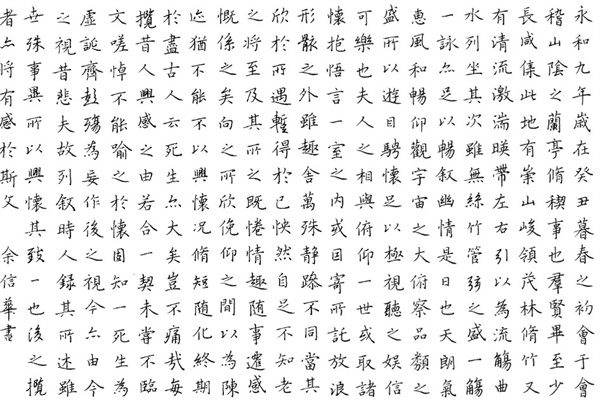 永和九年歲在癸丑暮春之初會于會
稽山陰之蘭亭脩稧事也羣賢畢至少
長咸集此地有崇山峻領茂林脩竹又
有清流激湍暎帶左右引以為流觴曲
水列坐其次雖無絲竹管弦之盛一觴
一詠亦足以暢叙幽情是日也天朗氣
惠風和暢仰觀宇宙之大俯察品類之
盛所以遊目騁懷足以極視聽之娛信
可樂也夫人之相與俯仰一世或取諸
懷抱悟言一室之內或因寄所託放浪
形骸之外雖趣舍萬殊静躁不同當其
欣於所遇蹔得於己怏然自足不知老
之將至及其所之既惓情趣隨事遷感
慨係之矣向之所欣俛仰之間以為陳
迹猶不能不以興懷況脩短隨化終期
於盡古人云死生亦大矣豈不痛哉每
攬昔人興感之由若合一契未嘗不臨
文嗟悼不能喻之於懷固知一死生為
虛誕齊彭殤為妄作後之視今亦由今
之視昔悲夫故列叙時人錄其所述雖
世殊事異所以興懷其致一也後之攬
者亦將有感於斯文 余信華書